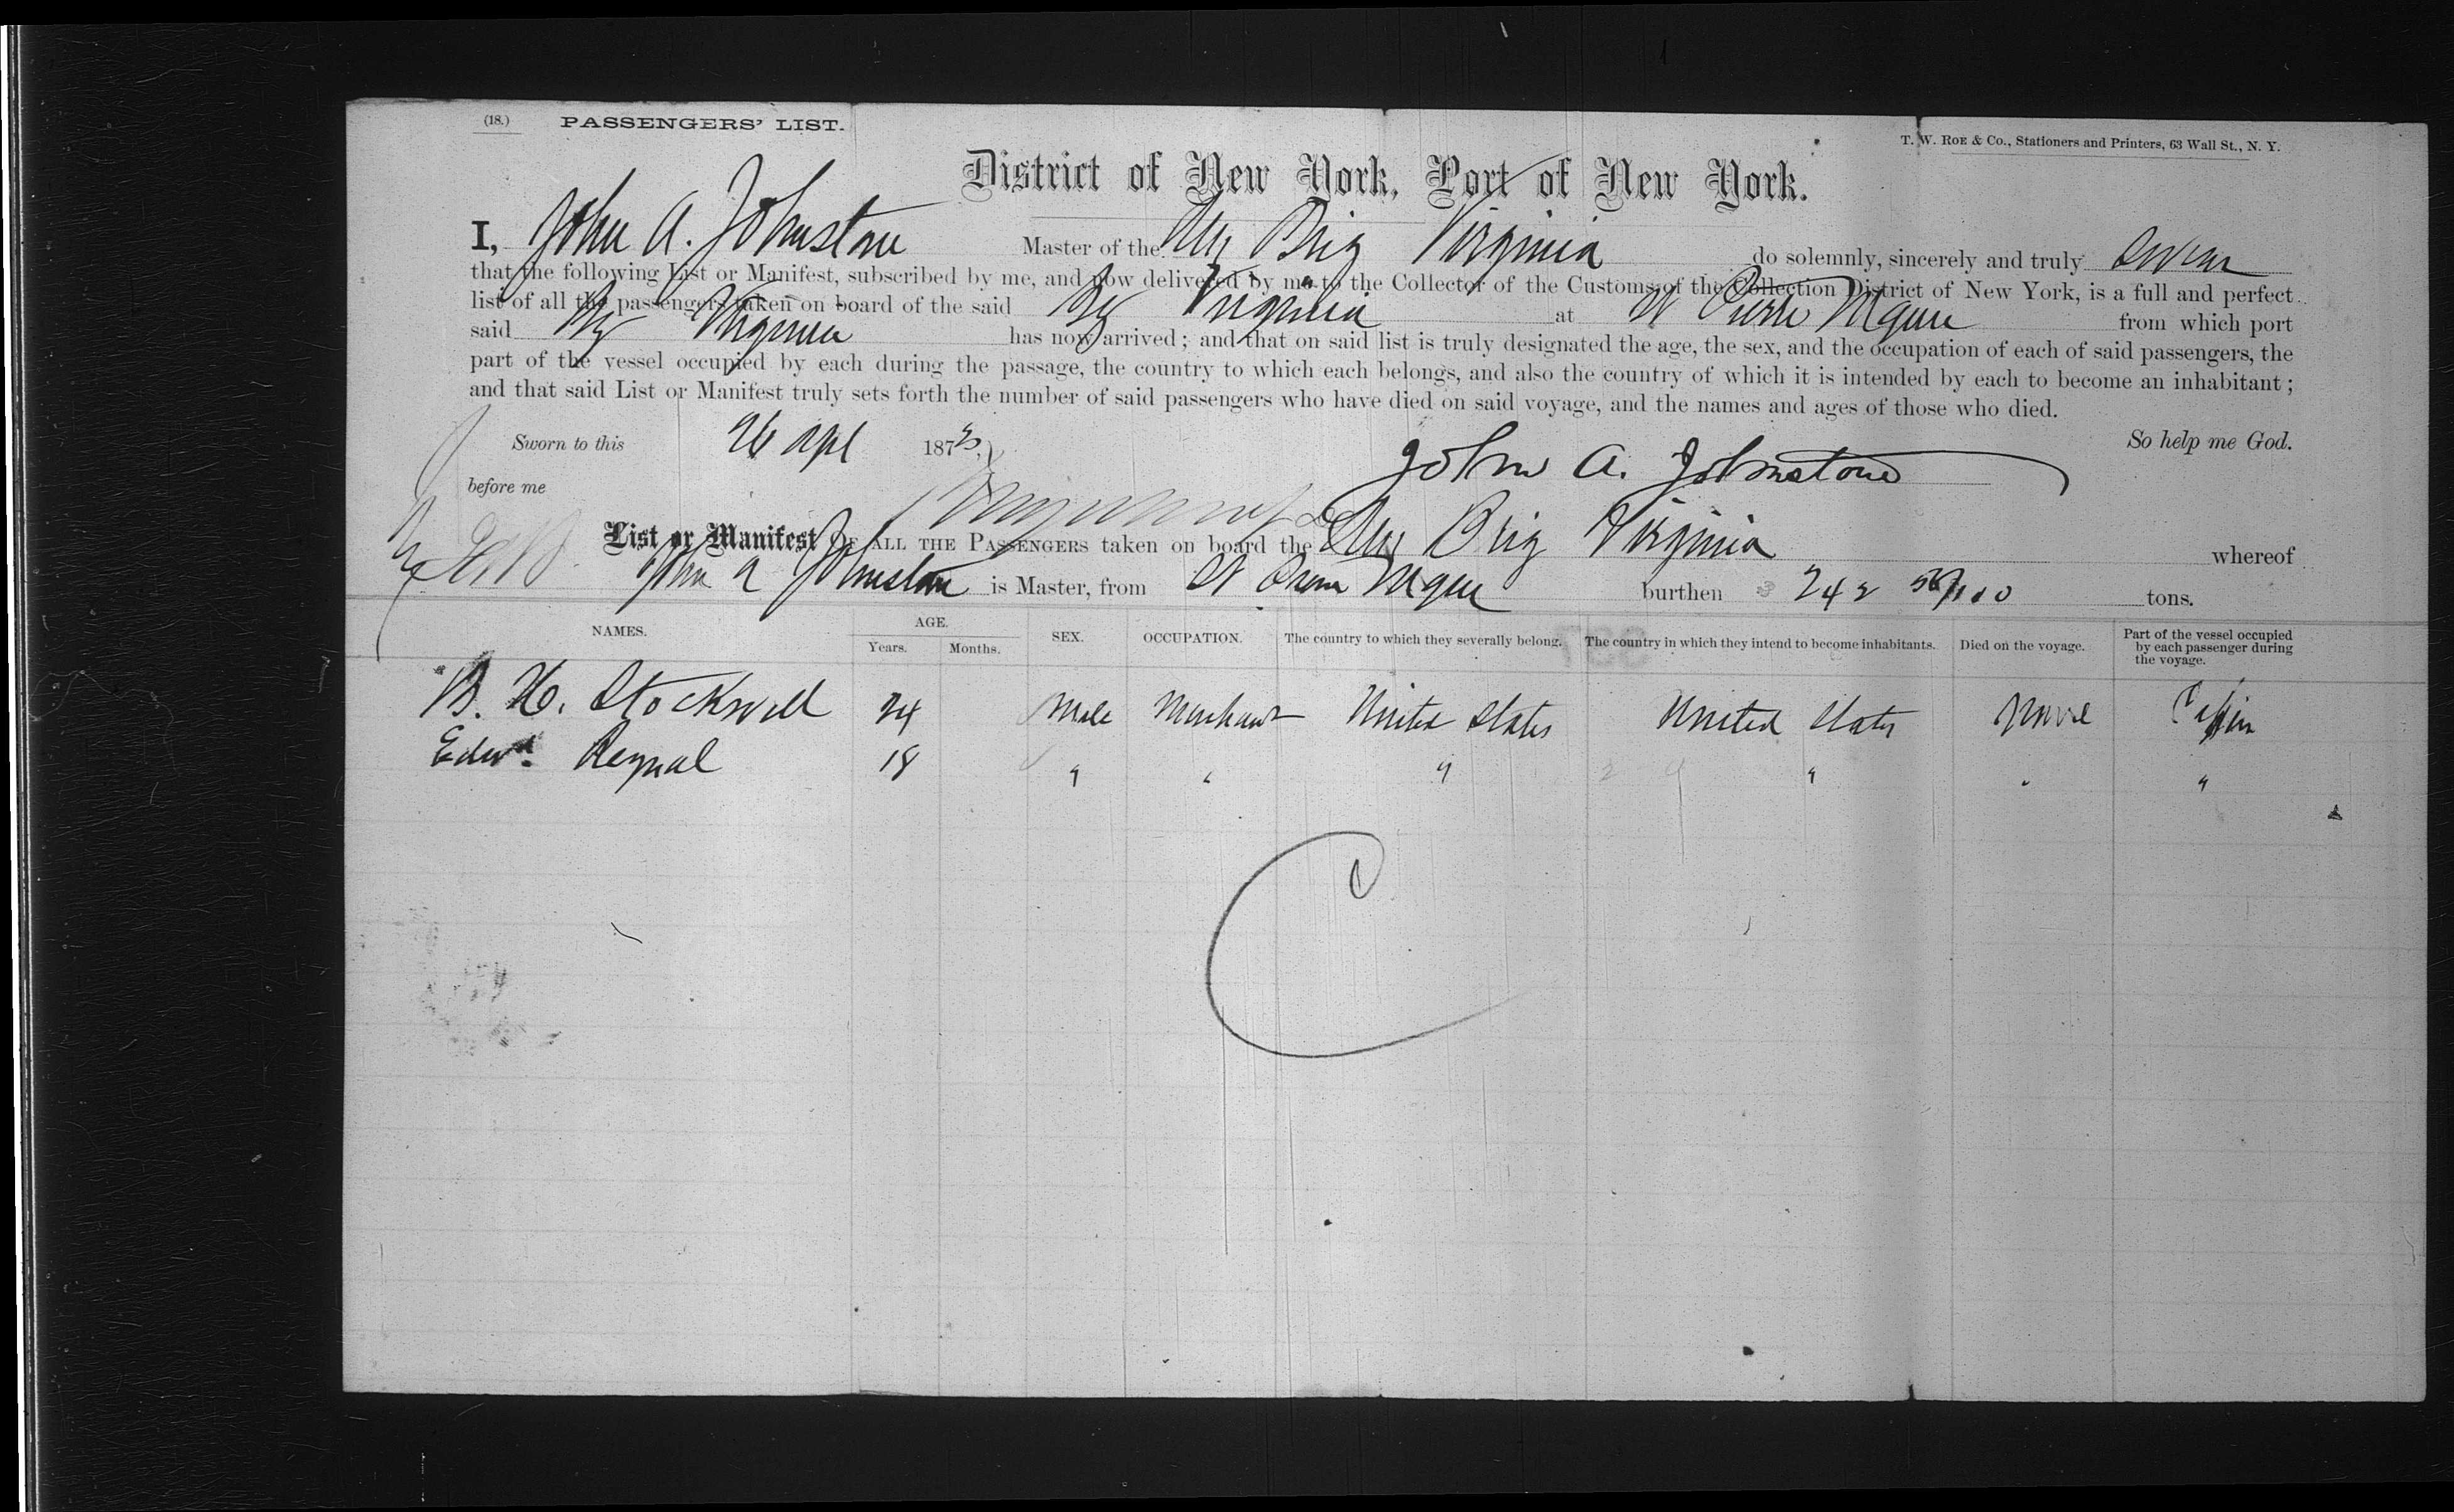 (18.) PASSENGERS' LIST.
T. W. ROE & CO., Stationers and Printers, 63 Wall St., N. Y.
District of New York, Port of New York.
I, John A. Johnstone Master of the Brig Virginia do solemnly, sincerely and truly swear
that the following List or Manifest, subscribed by me, and now delivered by me to the Collector of the Customs of the Collection District of New York, is a full and perfect
list of all the passengers taken on board of the said Bg Virginia at St Pierre from which port
said Bg Virginia has now arrived; and that on said list is truly designated the age, the sex, and the occupation of each of said passengers, the
part of the vessel occupied by each during the passage, the country to which each belongs, and also the country of which it is intended by each to become an inhabitant;
and that said List or Manifest truly sets forth the number of said passengers who have died on said voyage, and the names and ages of those who died.
Sworn to this 26 Apl 187 So help me God.
John A. Johnstone
before me
List or Manifest OF ALL THE PASSENGERS taken on board the Brig Virginia whereof
John A Johnstone is Master, from St Pierre burthen 242 tons.
NAMES. AGE. Years. Months. SEX. OCCUPATION. The country to which they severally belong. The country in which they intend to become inhabitants. Died on the voyage. Part of the vessel occupied by each passenger during the voyage.
B. H. Stockwell 24 Male Merchant United States United States None Cabin
Edwd. Reynal 18 " " " " " "